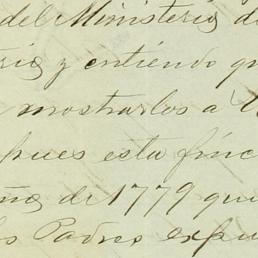 del Ministerio d
y entiendo q
mostrarlos a
pues esta finc
de 1779 qu
Padres expu